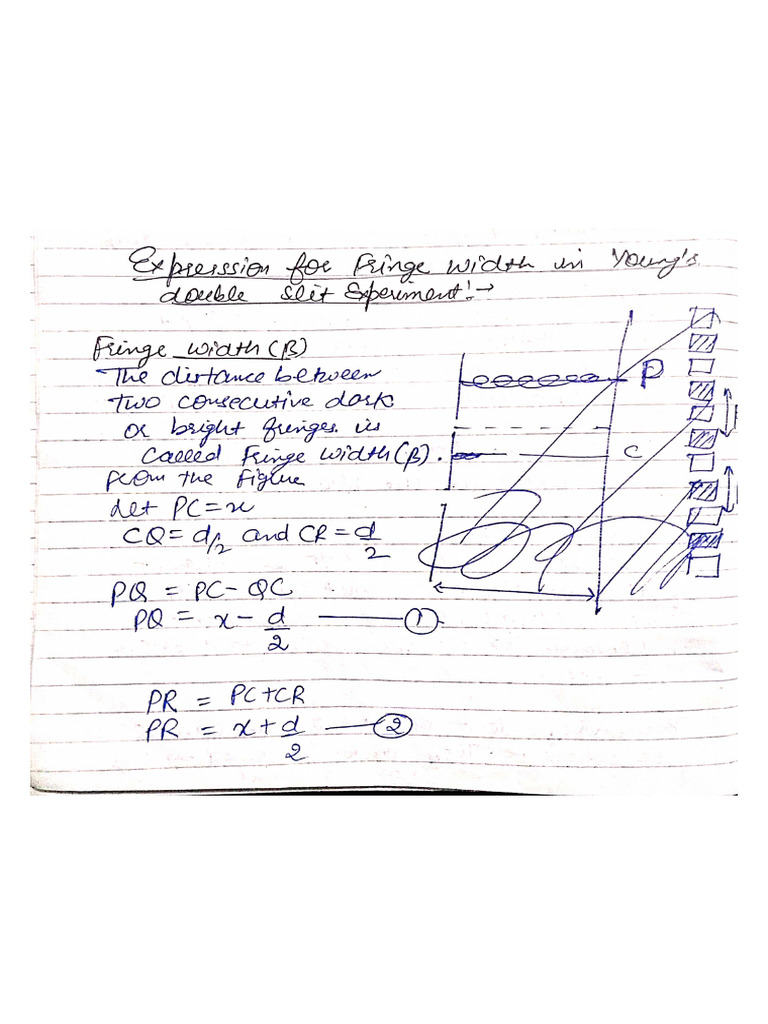 Expresssion for Fringe width in Young's
double slit Experiment:→
Fringe width (β)
The distance between
two consecutive dark
or bright fringes is
called Fringe width (β).
from the figure
let PC = x
CQ = d/2 and CR = d/2
PQ = PC - QC
PQ = x - d/2 —— ①
PR = PC + CR
PR = x + d/2 —— ②
P
C